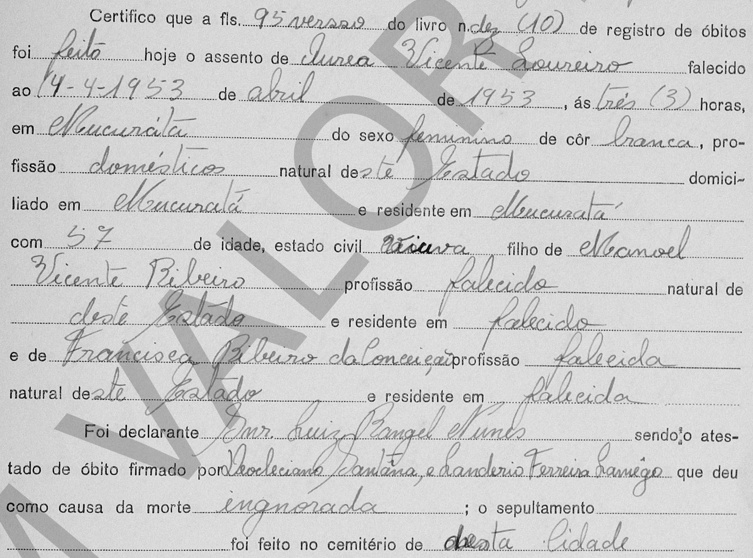 Certifico que a fls. 95 versso do livro n. dez (10) de registro de óbitos
foi feito hoje o assento de Aurea Vicente Loureiro falecido
ao 14-4-1953 de abril de 1953, ás três (3) horas,
em Mucuratá do sexo feminino de côr branca, pro-
fissão domésticos natural deste Estado domici-
liado em Mucuratá e residente em Mucuratá
com 57 de idade, estado civil viuva filho de Manoel
Vicente Ribeiro profissão falecido natural de
deste Estado e residente em falecido
e de Francisca Ribeiro da Conceição profissão falecida
natural deste Estado e residente em falecida
Foi declarante Snr. Luiz Rangel Nunes sendo o ates-
tado de óbito firmado por Deocleciano Santana, e Landerio Ferreira Lamêgo que deu
como causa da morte ingnorada ; o sepultamento
foi feito no cemitério de desta Cidade
VALOR